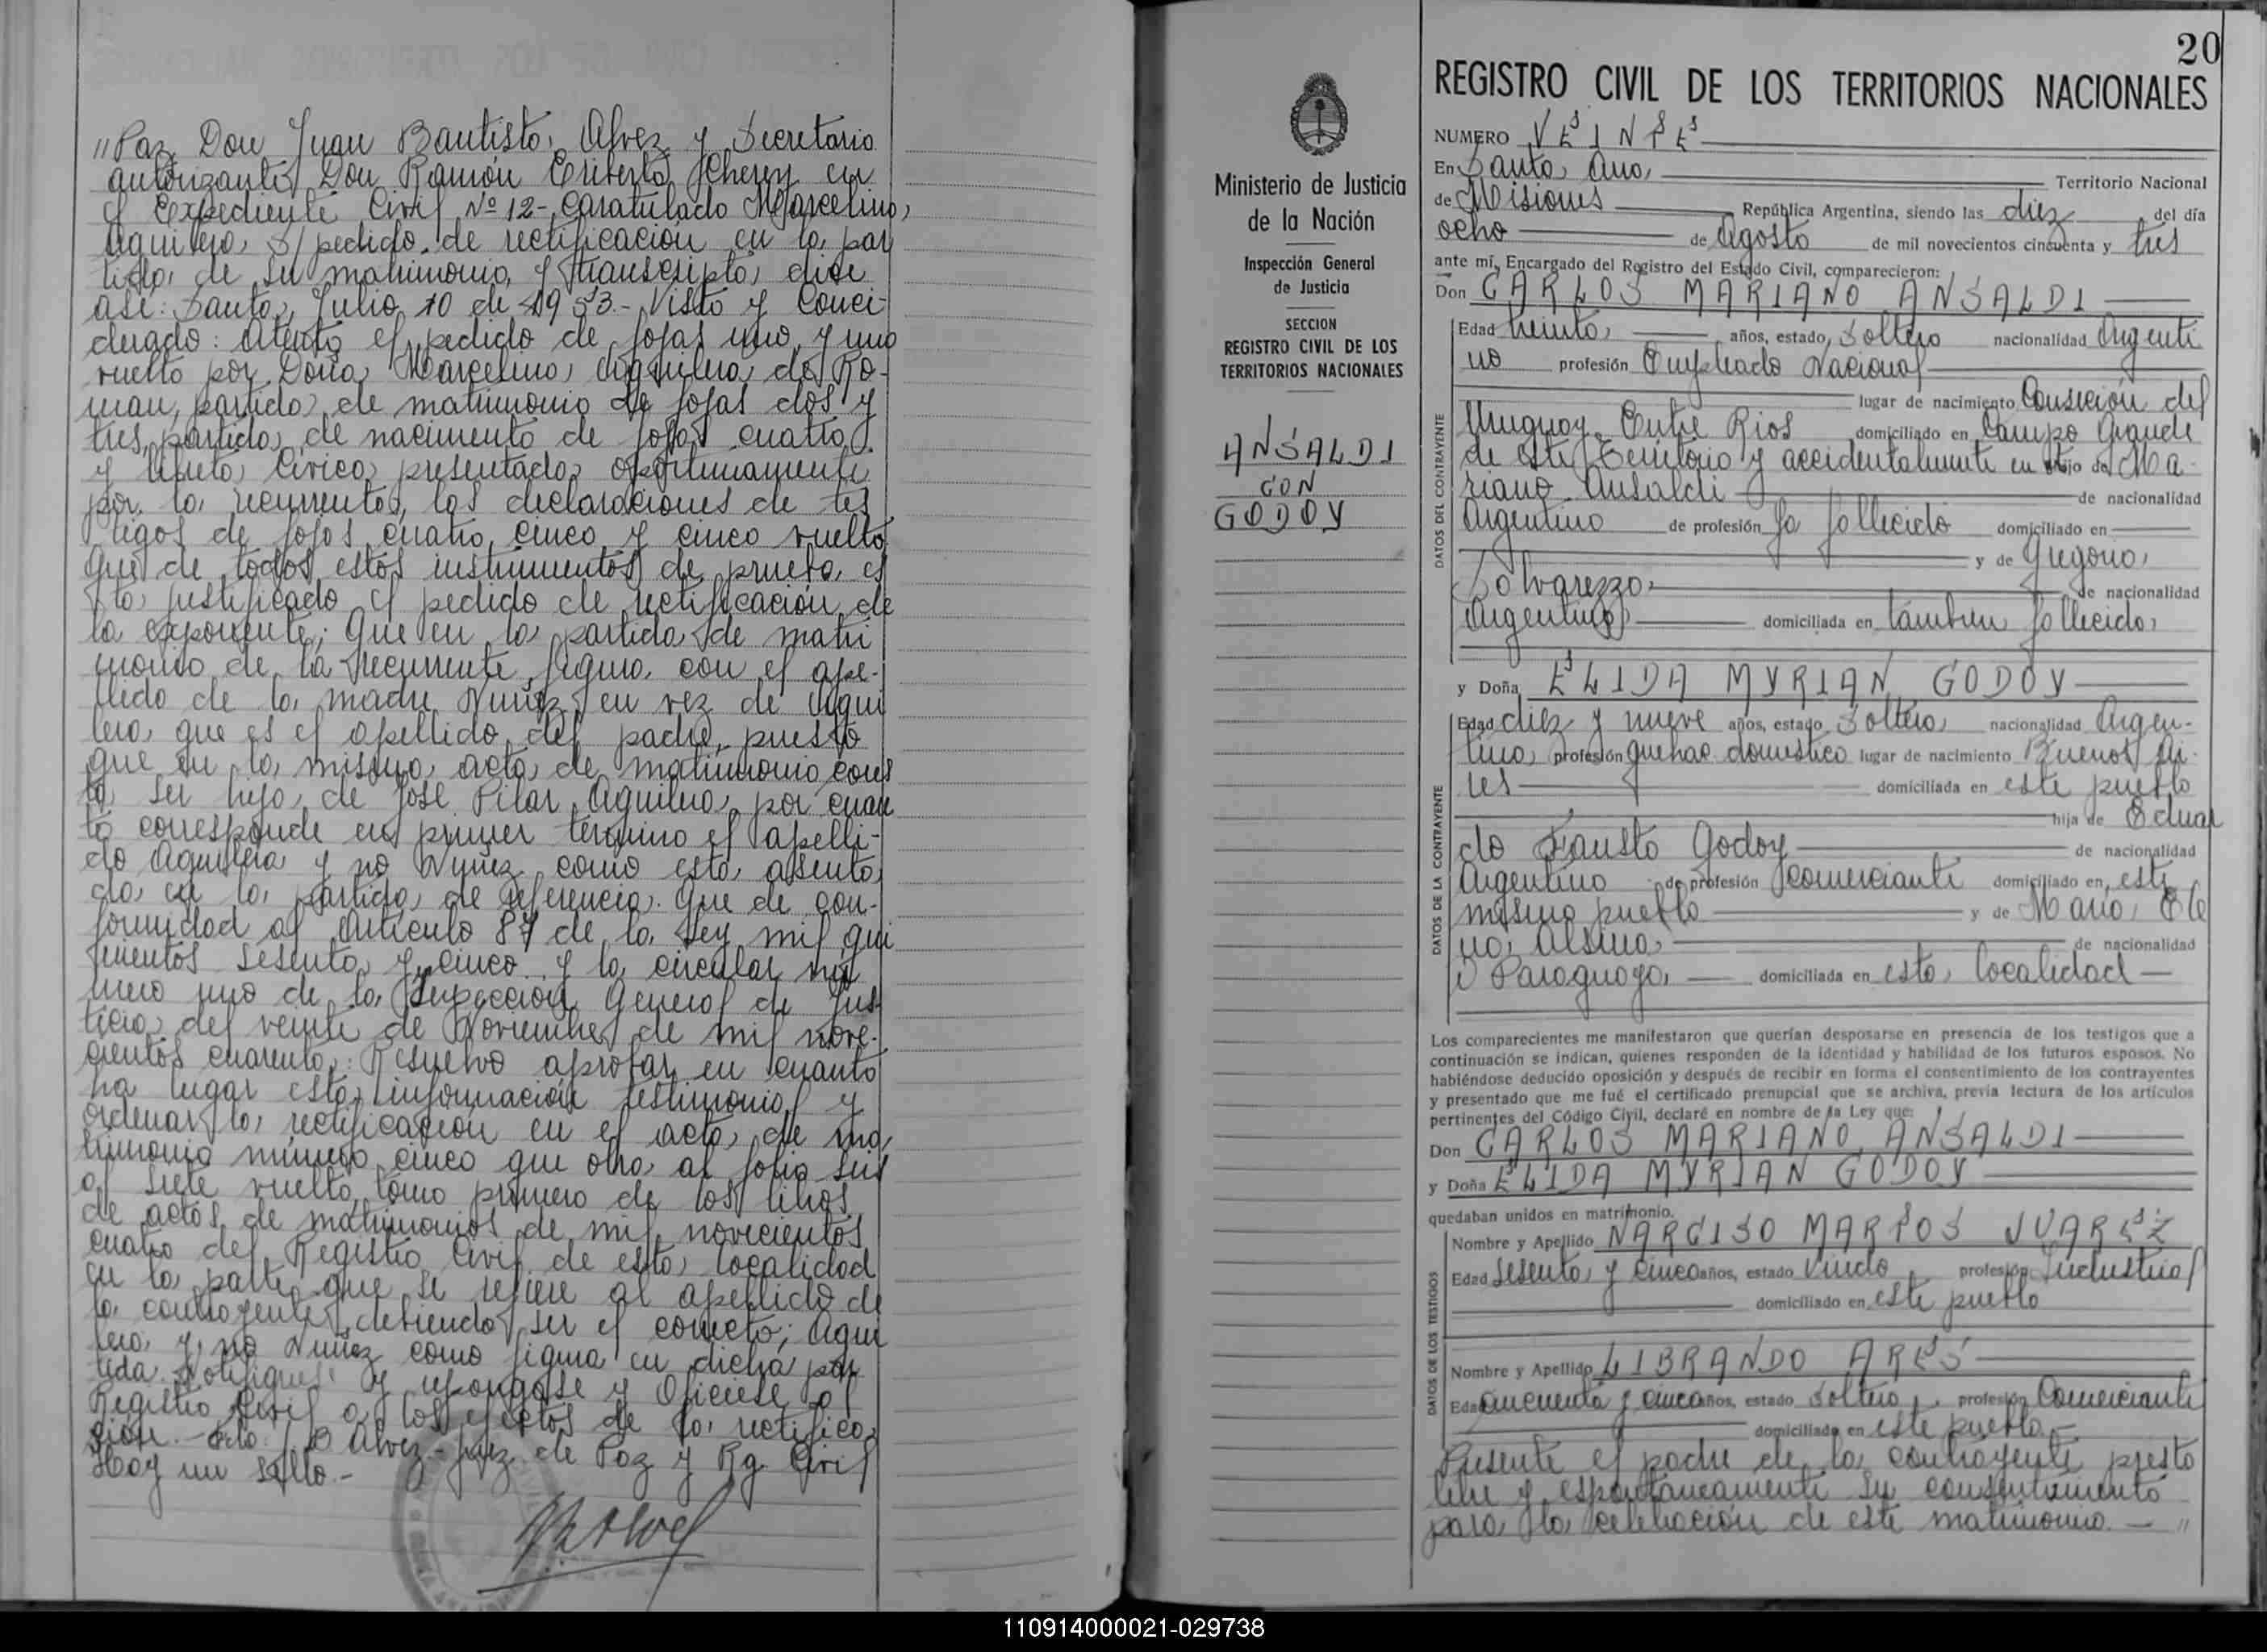 "Paz Don Juan Bautista Alvez y Secretario
autorizante Don Ramón Eriberto en
el Expediente Civil Nº 12- Caratulado Marcelina
Aquilera, S/ pedido de rectificación en la par
tida de su matrimonio, y transcripta, dice
asi: Santa, Julio 10 de 1953.- Visto y Conci-
derado: Atento el pedido de fojas uno y uno
vuelto por Doña Marcelina Aquilera de Ro-
man, partida de matrimonio de fojas dos y
tres, partida de nacimiento de fojas cuatro
y libreta Cívica presentada oportunamente
por la recurrente, las declaraciones de tes
tigos de fojas cuatro, cinco y cinco vuelto
Que de todos estos instrumentos de prueba, es
ta justificado el pedido de rectificación de
la exponente; Que en la partida de matri
monio de la recurrente figura con el ape-
llido de la madre Nuñez en vez de Aqui
lera, que es el apellido del padre, puesto
que en la misma acta de matrimonio cons
ta ser hija de José Pilar Aquilera, por cuan
to corresponde en primer término el apelli-
do Aquilera y no Nuñez como esta asenta
da en la partida de referencia. Que de con-
formidad al Articulo 87 de la Ley mil qui
nientos sesenta y cinco y la circular nú
mero uno de la Inspección General de Jus-
ticia del veinte de Noviembre de mil nove-
cientos cuarenta: Resuelvo aprobar en cuanto
ha lugar esta información testimonial y
ordenar la rectificación en el acta de ma
trimonio número cinco que obra al folio seis
al siete vuelto, tomo primero de los libros
de actas de matrimonios de mil novecientos
cuatro del Registro Civil de esta localidad
en la parte que se refiere al apellido de
la contrayente, debiendo ser el correcto; Aqui
lera y no Nuñez como figura en dicha par
tida. Notifiquese y repongase y Oficiese al
Registro Civil a los efectos de la rectifica-
ción.- Fdo: J. B Alvez - Juez de Paz y Rg. Civil
Hay un sello.-
20
REGISTRO CIVIL DE LOS TERRITORIOS NACIONALES
Ministerio de Justicia
de la Nación
Inspección General
de Justicia
SECCION
REGISTRO CIVIL DE LOS
TERRITORIOS NACIONALES
ANSALDI
CON
GODOY
NUMERO VEINTE
En Santa Ana, Territorio Nacional
de Misiones República Argentina, siendo las diez del día
ocho de Agosto de mil novecientos cincuenta y tres
ante mí, Encargado del Registro del Estado Civil, comparecieron:
Don CARLOS MARIANO ANSALDI
DATOS DEL CONTRAYENTE
Edad treinta, años, estado, Soltero nacionalidad Argenti
no profesión Empleado Nacional
lugar de nacimiento Concepción del
Uruguay, Entre Rios domiciliado en Campo Grande
de este Territorio y accidentalmente en hijo de Ma-
riano Ansaldi de nacionalidad
Argentino de profesión Ya fallecido domiciliado en
y de Gregoria
Solvarezza de nacionalidad
Argentina domiciliada en tambien fallecida
y Doña ELIDA MYRIAN GODOY
DATOS DE LA CONTRAYENTE
Edad diez y nueve años, estado Soltera, nacionalidad Argen-
tina, profesión quehac. doméstico lugar de nacimiento Buenos Ai-
res domiciliada en este pueblo
hija de Eduar
do Fausto Godoy de nacionalidad
Argentino de profesión Comerciante domiciliado en, este
mismo pueblo y de Maria Ele
na Alsina de nacionalidad
Paraguaya, domiciliada en esta localidad
Los comparecientes me manifestaron que querían desposarse en presencia de los testigos que a
continuación se indican, quienes responden de la identidad y habilidad de los futuros esposos. No
habiéndose deducido oposición y después de recibir en forma el consentimiento de los contrayentes
y presentado que me fué el certificado prenupcial que se archiva, previa lectura de los artículos
pertinentes del Código Civil, declaré en nombre de la Ley que:
Don CARLOS MARIANO ANSALDI
y Doña ELIDA MYRIAN GODOY
quedaban unidos en matrimonio.
DATOS DE LOS TESTIGOS
Nombre y Apellido NARCISO MARTOS JUAREZ
Edad Sesenta y cinco años, estado Viudo profesión Industrial
domiciliado en este pueblo
Nombre y Apellido LIBRANDO ARES
Edad Cincuenta y cinco años, estado Soltero, profesión Comerciante
domiciliado en este pueblo.-
Presente el padre de la contrayente presta
libre y espontáneamente su consentimiento
para la celebración de este matrimonio. — "
110914000021-029738